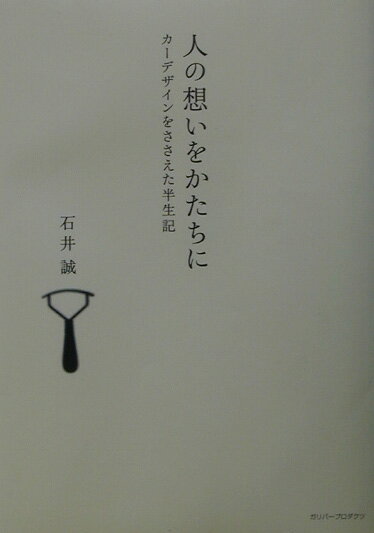 人の想いをかたちに
カーデザインをささえた半生記
石井誠
ガリバープロダクツ